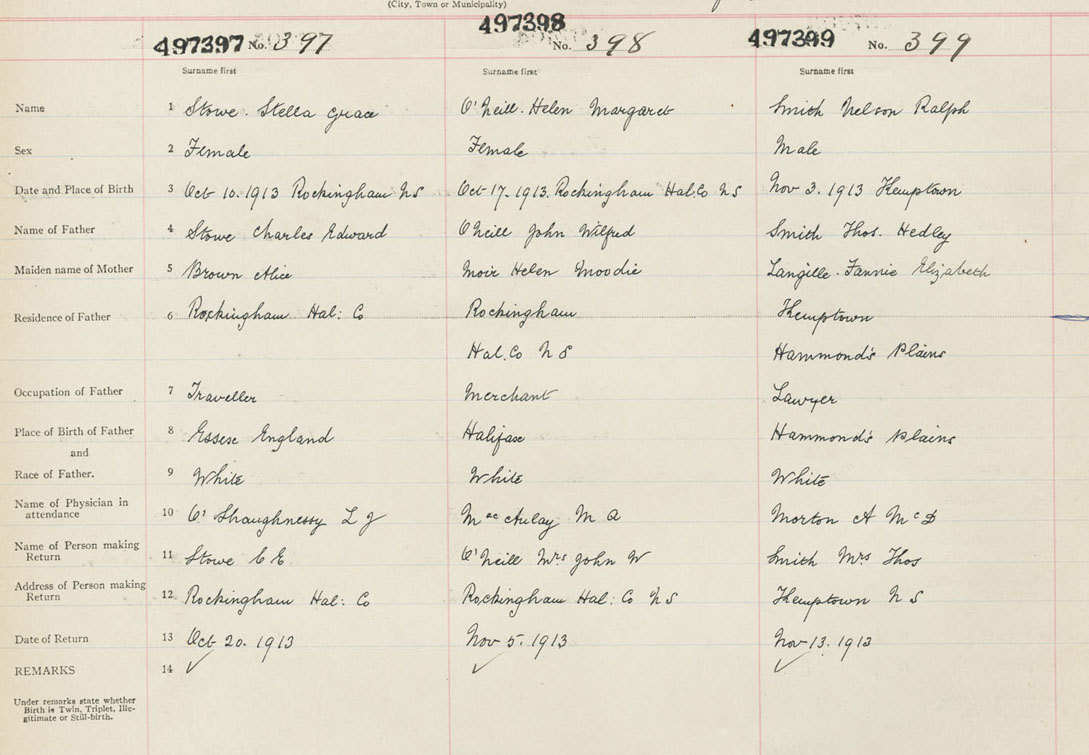 (City, Town or Municipality)
497397 No. 397 497398 No. 398 497399 No. 399
Surname first Surname first Surname first
Name 1 Stowe. Stella Grace O'Neill. Helen Margaret Smith Nelson Ralph
Sex 2 Female Female Male
Date and Place of Birth 3 Oct 10. 1913 Rockingham NS Oct 17. 1913. Rockingham Hal. Co NS Nov 3. 1913 Kemptown
Name of Father 4 Stowe Charles Edward O'Neill John Wilfred Smith Thos. Hedley
Maiden name of Mother 5 Brown Alice Moir Helen Moodie Langille. Fannie Elizabeth
Residence of Father 6 Rockingham Hal: Co Rockingham Kemptown
Hal. Co N S Hammond's Plains
Occupation of Father 7 Traveller Merchant Lawyer
Place of Birth of Father 8 Essex England Halifax Hammond's Plains
and
Race of Father. 9 White White White
Name of Physician in
attendance 10 O'Shaughnessy L J MacAulay M A Morton A McD
Name of Person making
Return 11 Stowe C E O'Neill Mrs John W Smith Mrs Thos
Address of Person making
Return 12 Rockingham Hal: Co Rockingham Hal: Co N S Kemptown N S
Date of Return 13 Oct 20. 1913 Nov 5. 1913 Nov 13. 1913
REMARKS 14 ✓ ✓ ✓
Under remarks state whether
Birth is Twin, Triplet, Ille-
gitimate or Still-birth.